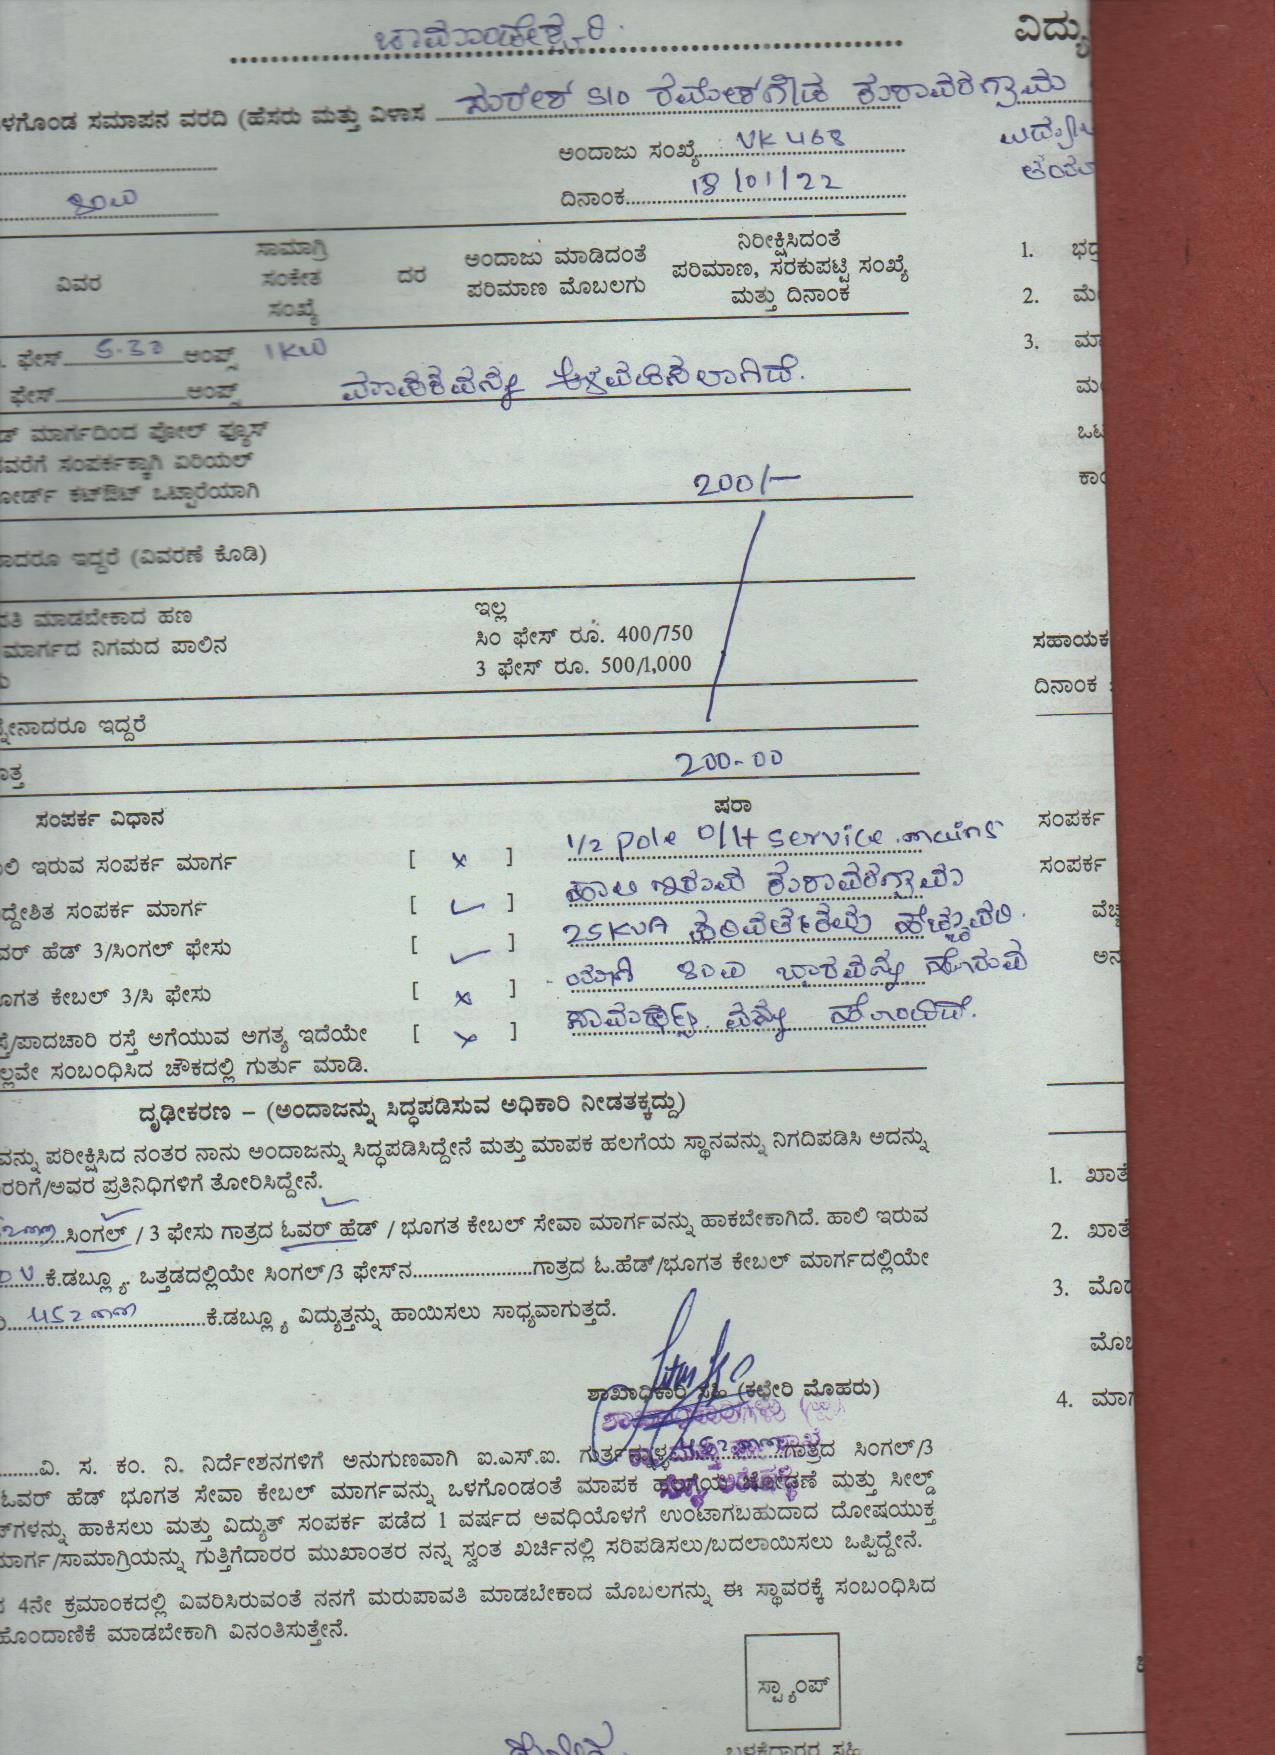 ಚಾಮುಂಡೇಶ್ವರಿ
ವಿದ್ಯು
ಳಗೊಂಡ ಸಮಾಪನ ವರದಿ (ಹೆಸರು ಮತ್ತು ವಿಳಾಸ ಸುರೇಶ್ S/o ರಮೇಶಗೌಡ
ಅಂದಾಜು ಸಂಖ್ಯೆ VK 468
ದಿನಾಂಕ 18/01/22
ವಿವರ
ಸಾಮಾಗ್ರಿ ಸಂಕೇತ ಸಂಖ್ಯೆ
ದರ
ಅಂದಾಜು ಮಾಡಿದಂತೆ ಪರಿಮಾಣ ಮೊಬಲಗು
ನಿರೀಕ್ಷಿಸಿದಂತೆ ಪರಿಮಾಣ, ಸರಕುಪಟ್ಟಿ ಸಂಖ್ಯೆ ಮತ್ತು ದಿನಾಂಕ
1. ಭದ್ರ
2. ಮೆ
3. ಮಾ
. ಫೇಸ್ 5-30 ಆಂಪ್ಸ್ 1KW
ಫೇಸ್ ಆಂಪ್ಸ್ ಮಾಪಕವನ್ನು ಅಳವಡಿಸಲಾಗಿದೆ.
ಡ್ ಮಾರ್ಗದಿಂದ ಪೋಲ್ ಫ್ಯೂಸ್
ವರೆಗೆ ಸಂಪರ್ಕಕ್ಕಾಗಿ ಏರಿಯಲ್
ೋರ್ಡ್ ಕಟ್‌ಔಟ್ ಒಟ್ಟಾರೆಯಾಗಿ 200/-
ಾದರೂ ಇದ್ದರೆ (ವಿವರಣೆ ಕೊಡಿ)
ವತಿ ಮಾಡಬೇಕಾದ ಹಣ ಇಲ್ಲ
ಮಾರ್ಗದ ನಿಗಮದ ಪಾಲಿನ ಸಿಂ ಫೇಸ್ ರೂ. 400/750
3 ಫೇಸ್ ರೂ. 500/1,000
ಸಹಾಯಕ
ದಿನಾಂಕ :
ನ್ನೇನಾದರೂ ಇದ್ದರೆ
ತ್ತ 200-00
ಸಂಪರ್ಕ ವಿಧಾನ ಷರಾ
ಲಿ ಇರುವ ಸಂಪರ್ಕ ಮಾರ್ಗ [ x ] 1/2 pole O/H service mains
ದ್ದೇಶಿತ ಸಂಪರ್ಕ ಮಾರ್ಗ [ ✓ ] ಹಾಲಿ ಇರುವ
ವರ್ ಹೆಡ್ 3/ಸಿಂಗಲ್ ಫೇಸು [ ✓ ] 25KVA ಪರಿವರ್ತಕವು ಹೆಚ್ಚುವರಿ
ೂಗತ ಕೇಬಲ್ 3/ಸಿ ಫೇಸು [ x ] ಯಾಗಿ ಭಾರವನ್ನು ಹೊರುವ
ಸ್ತೆ/ಪಾದಚಾರಿ ರಸ್ತೆ ಅಗೆಯುವ ಅಗತ್ಯ ಇದೆಯೇ [ x ] ಸಾಮರ್ಥ್ಯ ವನ್ನು ಹೊಂದಿದೆ.
ಲ್ಲವೇ ಸಂಬಂಧಿಸಿದ ಚೌಕದಲ್ಲಿ ಗುರ್ತು ಮಾಡಿ.
ಸಂಪರ್ಕ
ಸಂಪರ್ಕ
ವೆಚ್ಚ
ದೃಢೀಕರಣ – (ಅಂದಾಜನ್ನು ಸಿದ್ಧಪಡಿಸುವ ಅಧಿಕಾರಿ ನೀಡತಕ್ಕದ್ದು)
ವನ್ನು ಪರೀಕ್ಷಿಸಿದ ನಂತರ ನಾನು ಅಂದಾಜನ್ನು ಸಿದ್ಧಪಡಿಸಿದ್ದೇನೆ ಮತ್ತು ಮಾಪಕ ಹಲಗೆಯ ಸ್ಥಾನವನ್ನು ನಿಗದಿಪಡಿಸಿ ಅದನ್ನು
ರರಿಗೆ/ಅವರ ಪ್ರತಿನಿಧಿಗಳಿಗೆ ತೋರಿಸಿದ್ದೇನೆ.
ಸಿಂಗಲ್ / 3 ಫೇಸು ಗಾತ್ರದ ಓವರ್ ಹೆಡ್ / ಭೂಗತ ಕೇಬಲ್ ಸೇವಾ ಮಾರ್ಗವನ್ನು ಹಾಕಬೇಕಾಗಿದೆ. ಹಾಲಿ ಇರುವ
ಕೆ.ಡಬ್ಲ್ಯೂ. ಒತ್ತಡದಲ್ಲಿಯೇ ಸಿಂಗಲ್/3 ಫೇಸ್‌ನ ಗಾತ್ರದ ಓ.ಹೆಡ್/ಭೂಗತ ಕೇಬಲ್ ಮಾರ್ಗದಲ್ಲಿಯೇ
ಕೆ.ಡಬ್ಲ್ಯೂ ವಿದ್ಯುತ್ತನ್ನು ಹಾಯಿಸಲು ಸಾಧ್ಯವಾಗುತ್ತದೆ.
1. ಖಾತೆ
2. ಖಾತೆ
3. ಮೊದ
ಮೊಬ
4. ಮಾರ್ಗ
ಶಾಖಾಧಿಕಾರಿ ಸಹಿ (ಕಛೇರಿ ಮೊಹರು)
ವಿ. ಸ. ಕಂ. ನಿ. ನಿರ್ದೇಶನಗಳಿಗೆ ಅನುಗುಣವಾಗಿ ಐ.ಎಸ್.ಐ. ಗಾತ್ರದ ಸಿಂಗಲ್/3
ಓವರ್ ಹೆಡ್ ಭೂಗತ ಸೇವಾ ಕೇಬಲ್ ಮಾರ್ಗವನ್ನು ಒಳಗೊಂಡಂತೆ ಮಾಪಕ ಹಲಗೆಯ ಜೋಡಣೆ ಮತ್ತು ಸೀಲ್ಡ್
ಗಳನ್ನು ಹಾಕಿಸಲು ಮತ್ತು ವಿದ್ಯುತ್ ಸಂಪರ್ಕ ಪಡೆದ 1 ವರ್ಷದ ಅವಧಿಯೊಳಗೆ ಉಂಟಾಗಬಹುದಾದ ದೋಷಯುಕ್ತ
ಮಾರ್ಗ/ಸಾಮಾಗ್ರಿಯನ್ನು ಗುತ್ತಿಗೆದಾರರ ಮುಖಾಂತರ ನನ್ನ ಸ್ವಂತ ಖರ್ಚಿನಲ್ಲಿ ಸರಿಪಡಿಸಲು/ಬದಲಾಯಿಸಲು ಒಪ್ಪಿದ್ದೇನೆ.
4ನೇ ಕ್ರಮಾಂಕದಲ್ಲಿ ವಿವರಿಸಿರುವಂತೆ ನನಗೆ ಮರುಪಾವತಿ ಮಾಡಬೇಕಾದ ಮೊಬಲಗನ್ನು ಈ ಸ್ಥಾವರಕ್ಕೆ ಸಂಬಂಧಿಸಿದ
ಹೊಂದಾಣಿಕೆ ಮಾಡಬೇಕಾಗಿ ವಿನಂತಿಸುತ್ತೇನೆ.
ಸ್ಟ್ಯಾಂಪ್
ಬಳಕೆದಾರರ ಸಹಿ